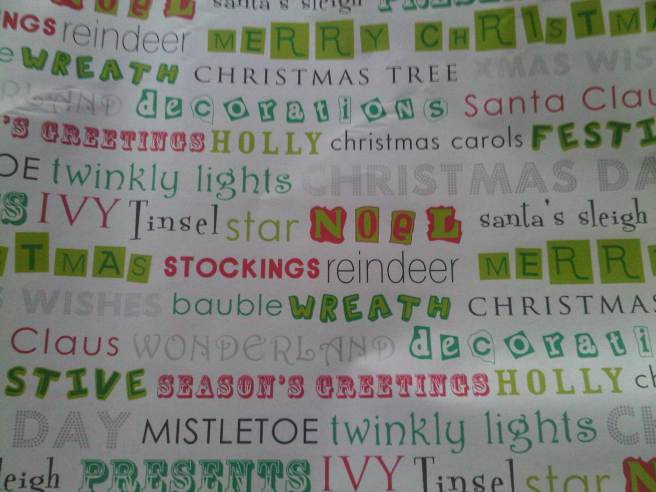 NOEL santa's sleigh PRESENTS
NGS reindeer MERRY CHRISTMA
e WREATH CHRISTMAS TREE XMAS WIS
ERLAND decorations Santa Clau
'S GREETINGS HOLLY christmas carols FESTI
OE twinkly lights CHRISTMAS DA
S IVY Tinsel star NOEL santa's sleigh
TMAS STOCKINGS reindeer MERR
S WISHES bauble WREATH CHRISTMAS
Claus WONDERLAND decorati
STIVE SEASON'S GREETINGS HOLLY ch
DAY MISTLETOE twinkly lights CH
leigh PRESENTS IVY Tinsel star N